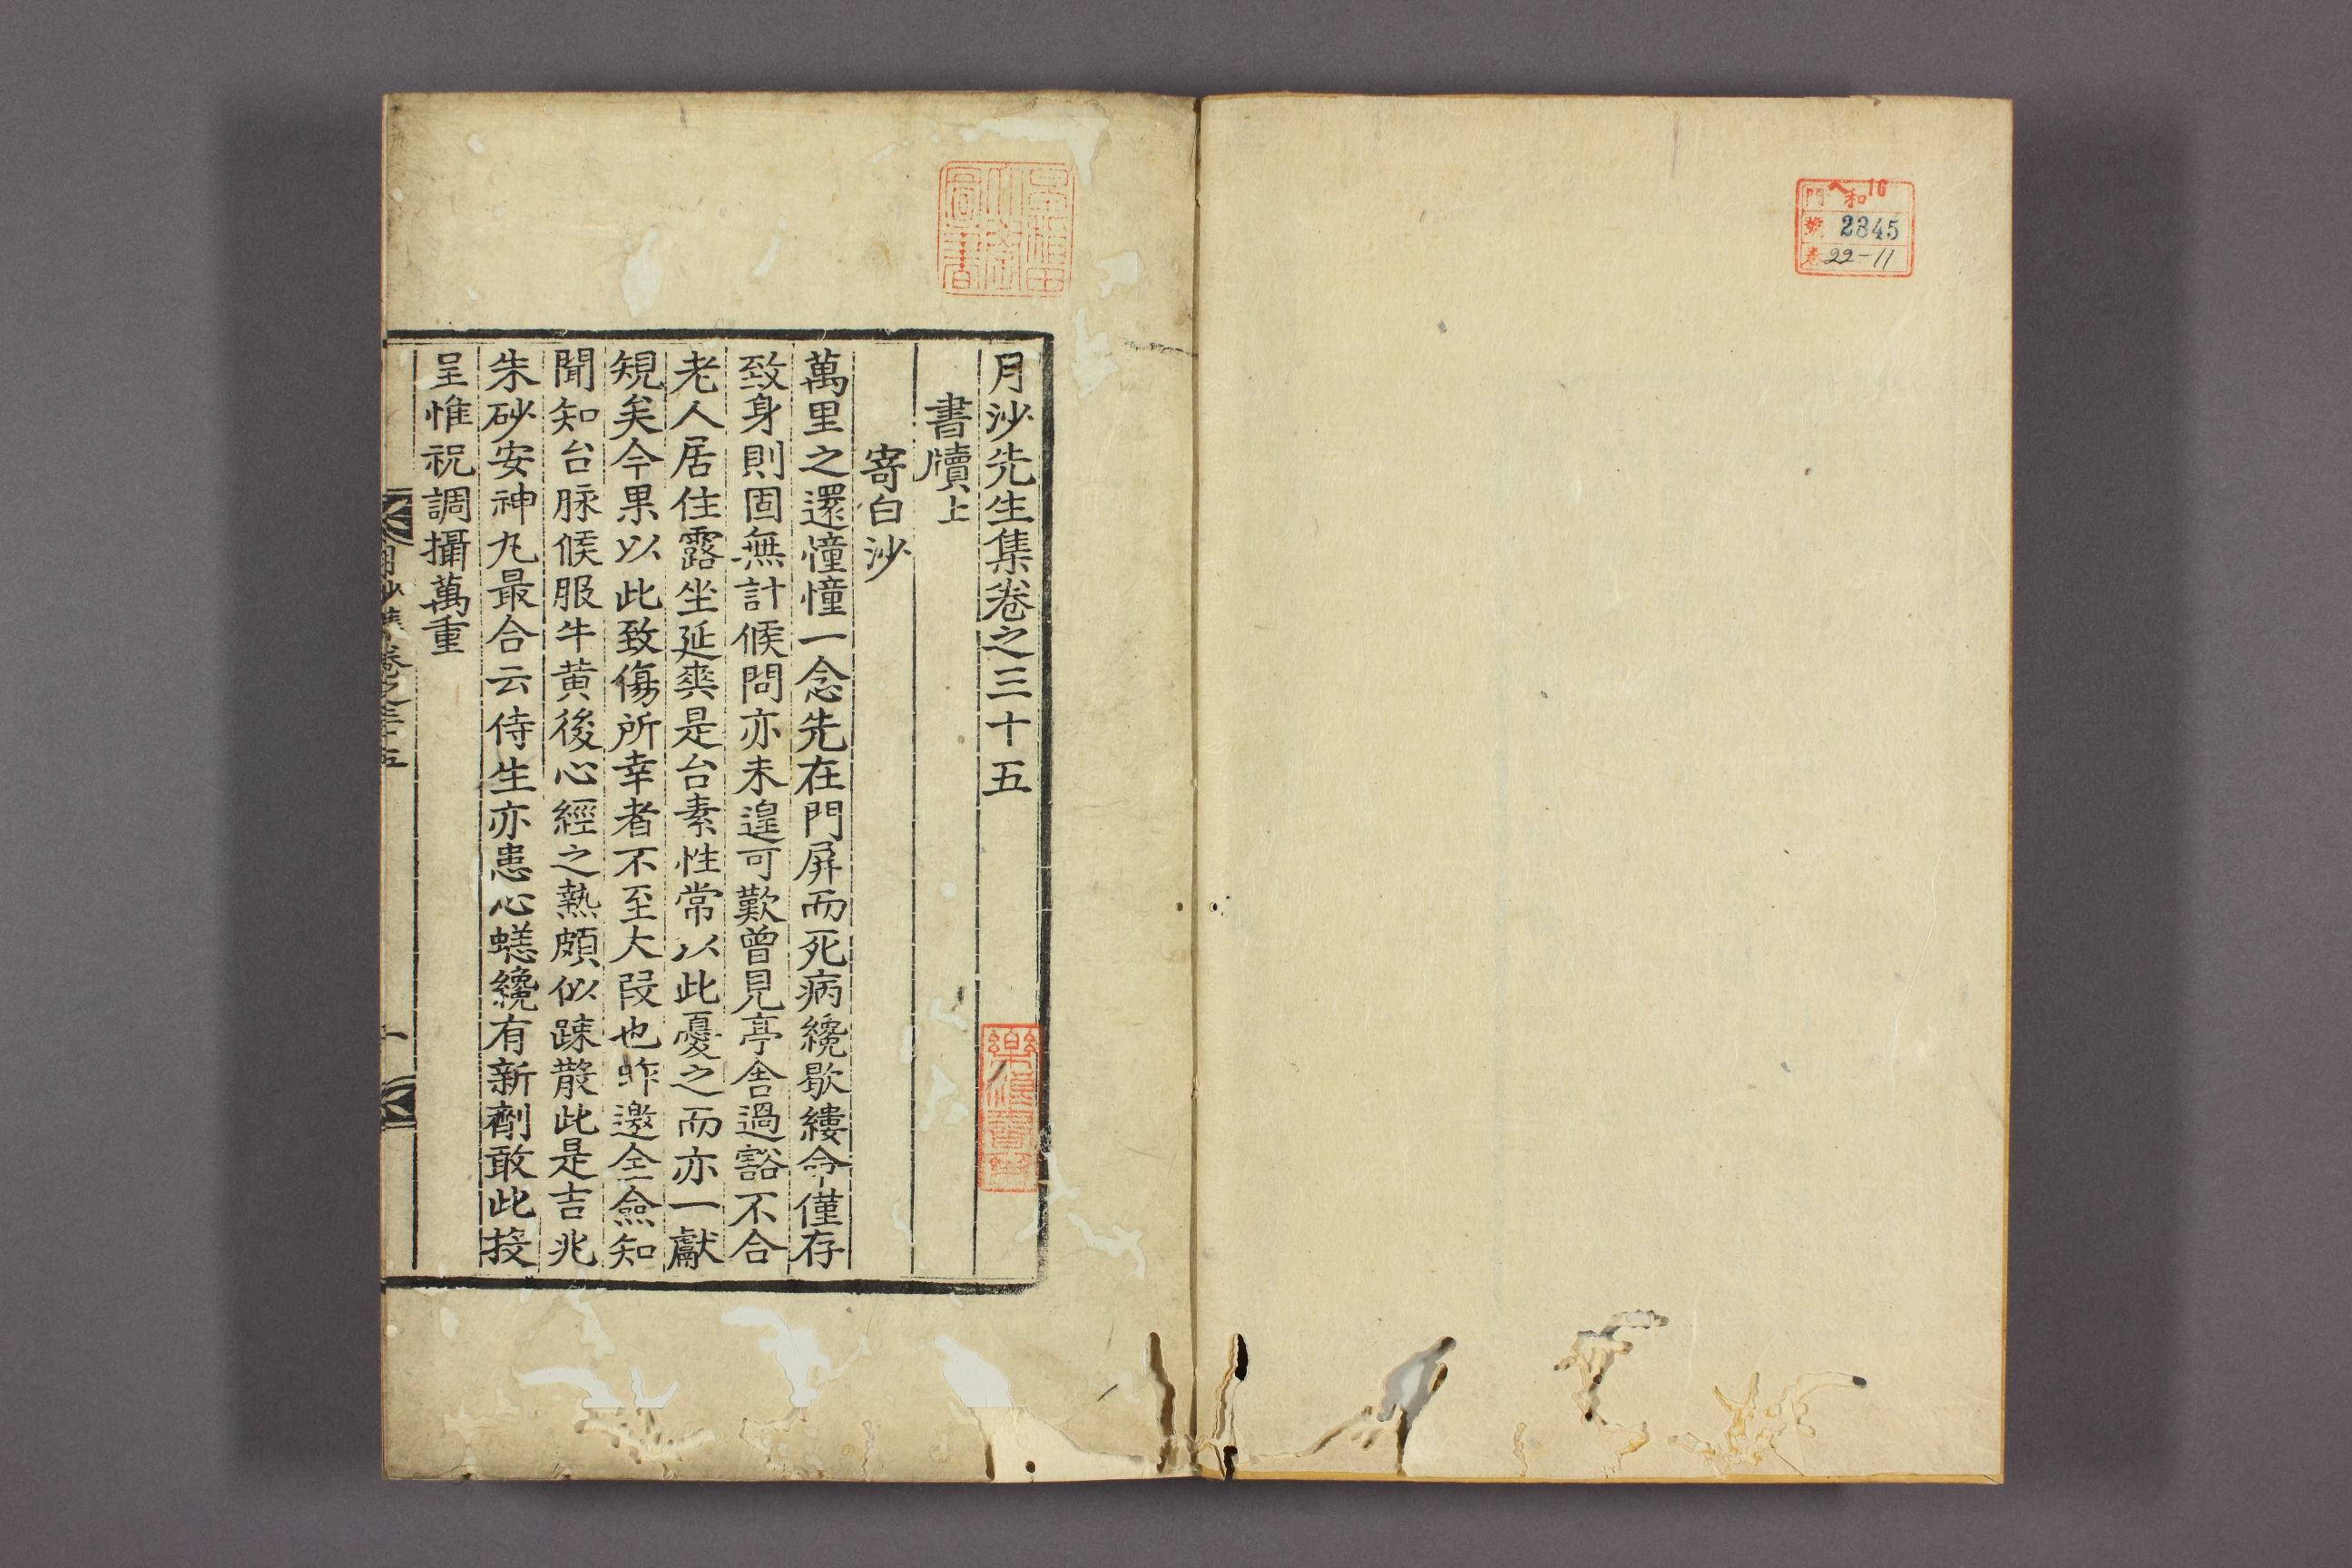 門 ヘ和16
號 2845
卷 22-11
月沙先生集卷之三十五
書牘上
寄白沙
萬里之還憧憧一念先在門屛而死病纔歇縷命僅存
致身則固無計候問亦未遑可歎曾見亭舍過豁不合
老人居住露坐延爽是台素性常以此憂之而亦一獻
規矣今果以此致傷所幸者不至大段也昨邀仝僉知
聞知台脉候服牛黄後心經之熱頗似踈散此是吉兆
朱砂安神丸最合云侍生亦患心𧏮纔有新劑敢此投
呈惟祝調攝萬重
月沙集卷之三十五
一